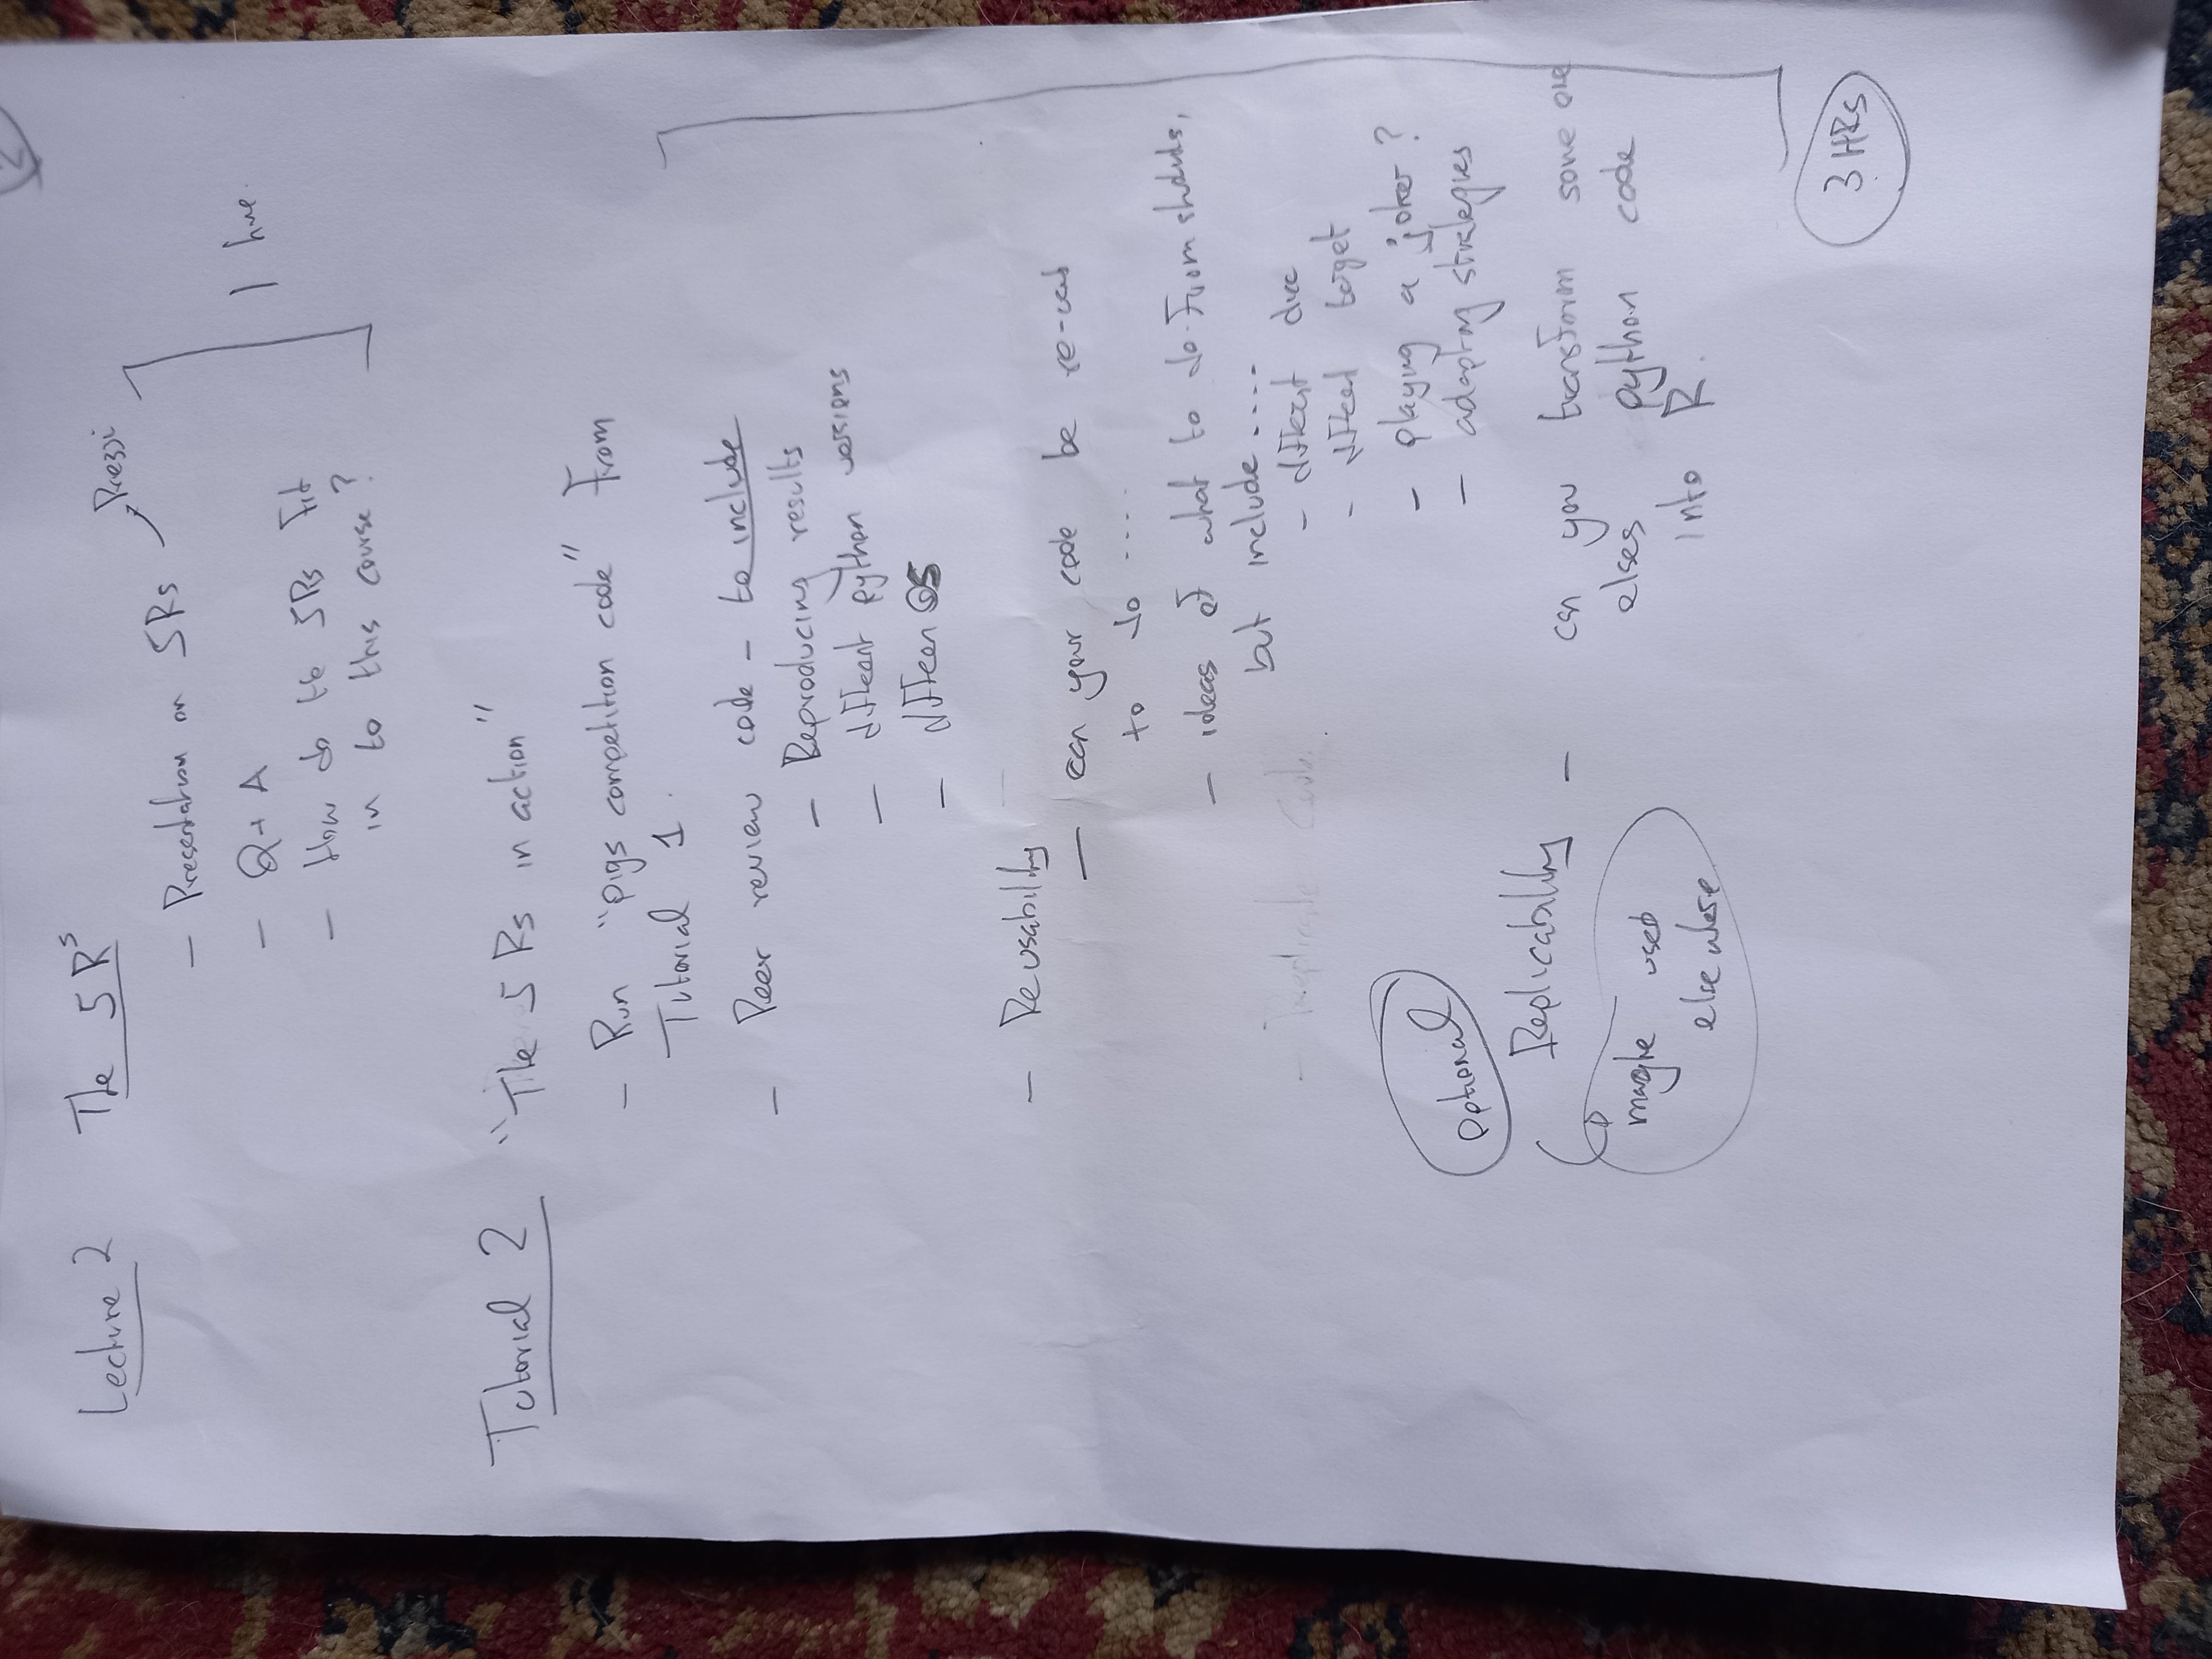 2
Lecture 2 The 5 Rs
Prezzi
- Presentation on 5Rs
- Q + A
1 hre.
- How do the 5Rs Fit
in to this course?
Tutorial 2 "The 5 Rs in action"
- Run "pigs competition code" From
Tutorial 1.
- Peer review code - to include
- Reproducing results
- different python versions
- differen OS
- Reusability
- can your code be re-used
to do ....
- ideas of what to do From students,
but include ....
- Replicate Code
- different dice
- different target
- playing a joker?
- adapting strategies
optional
Replicability - can you transform some one
elses python code
into R.
maybe used
elsewhere
3 HRs